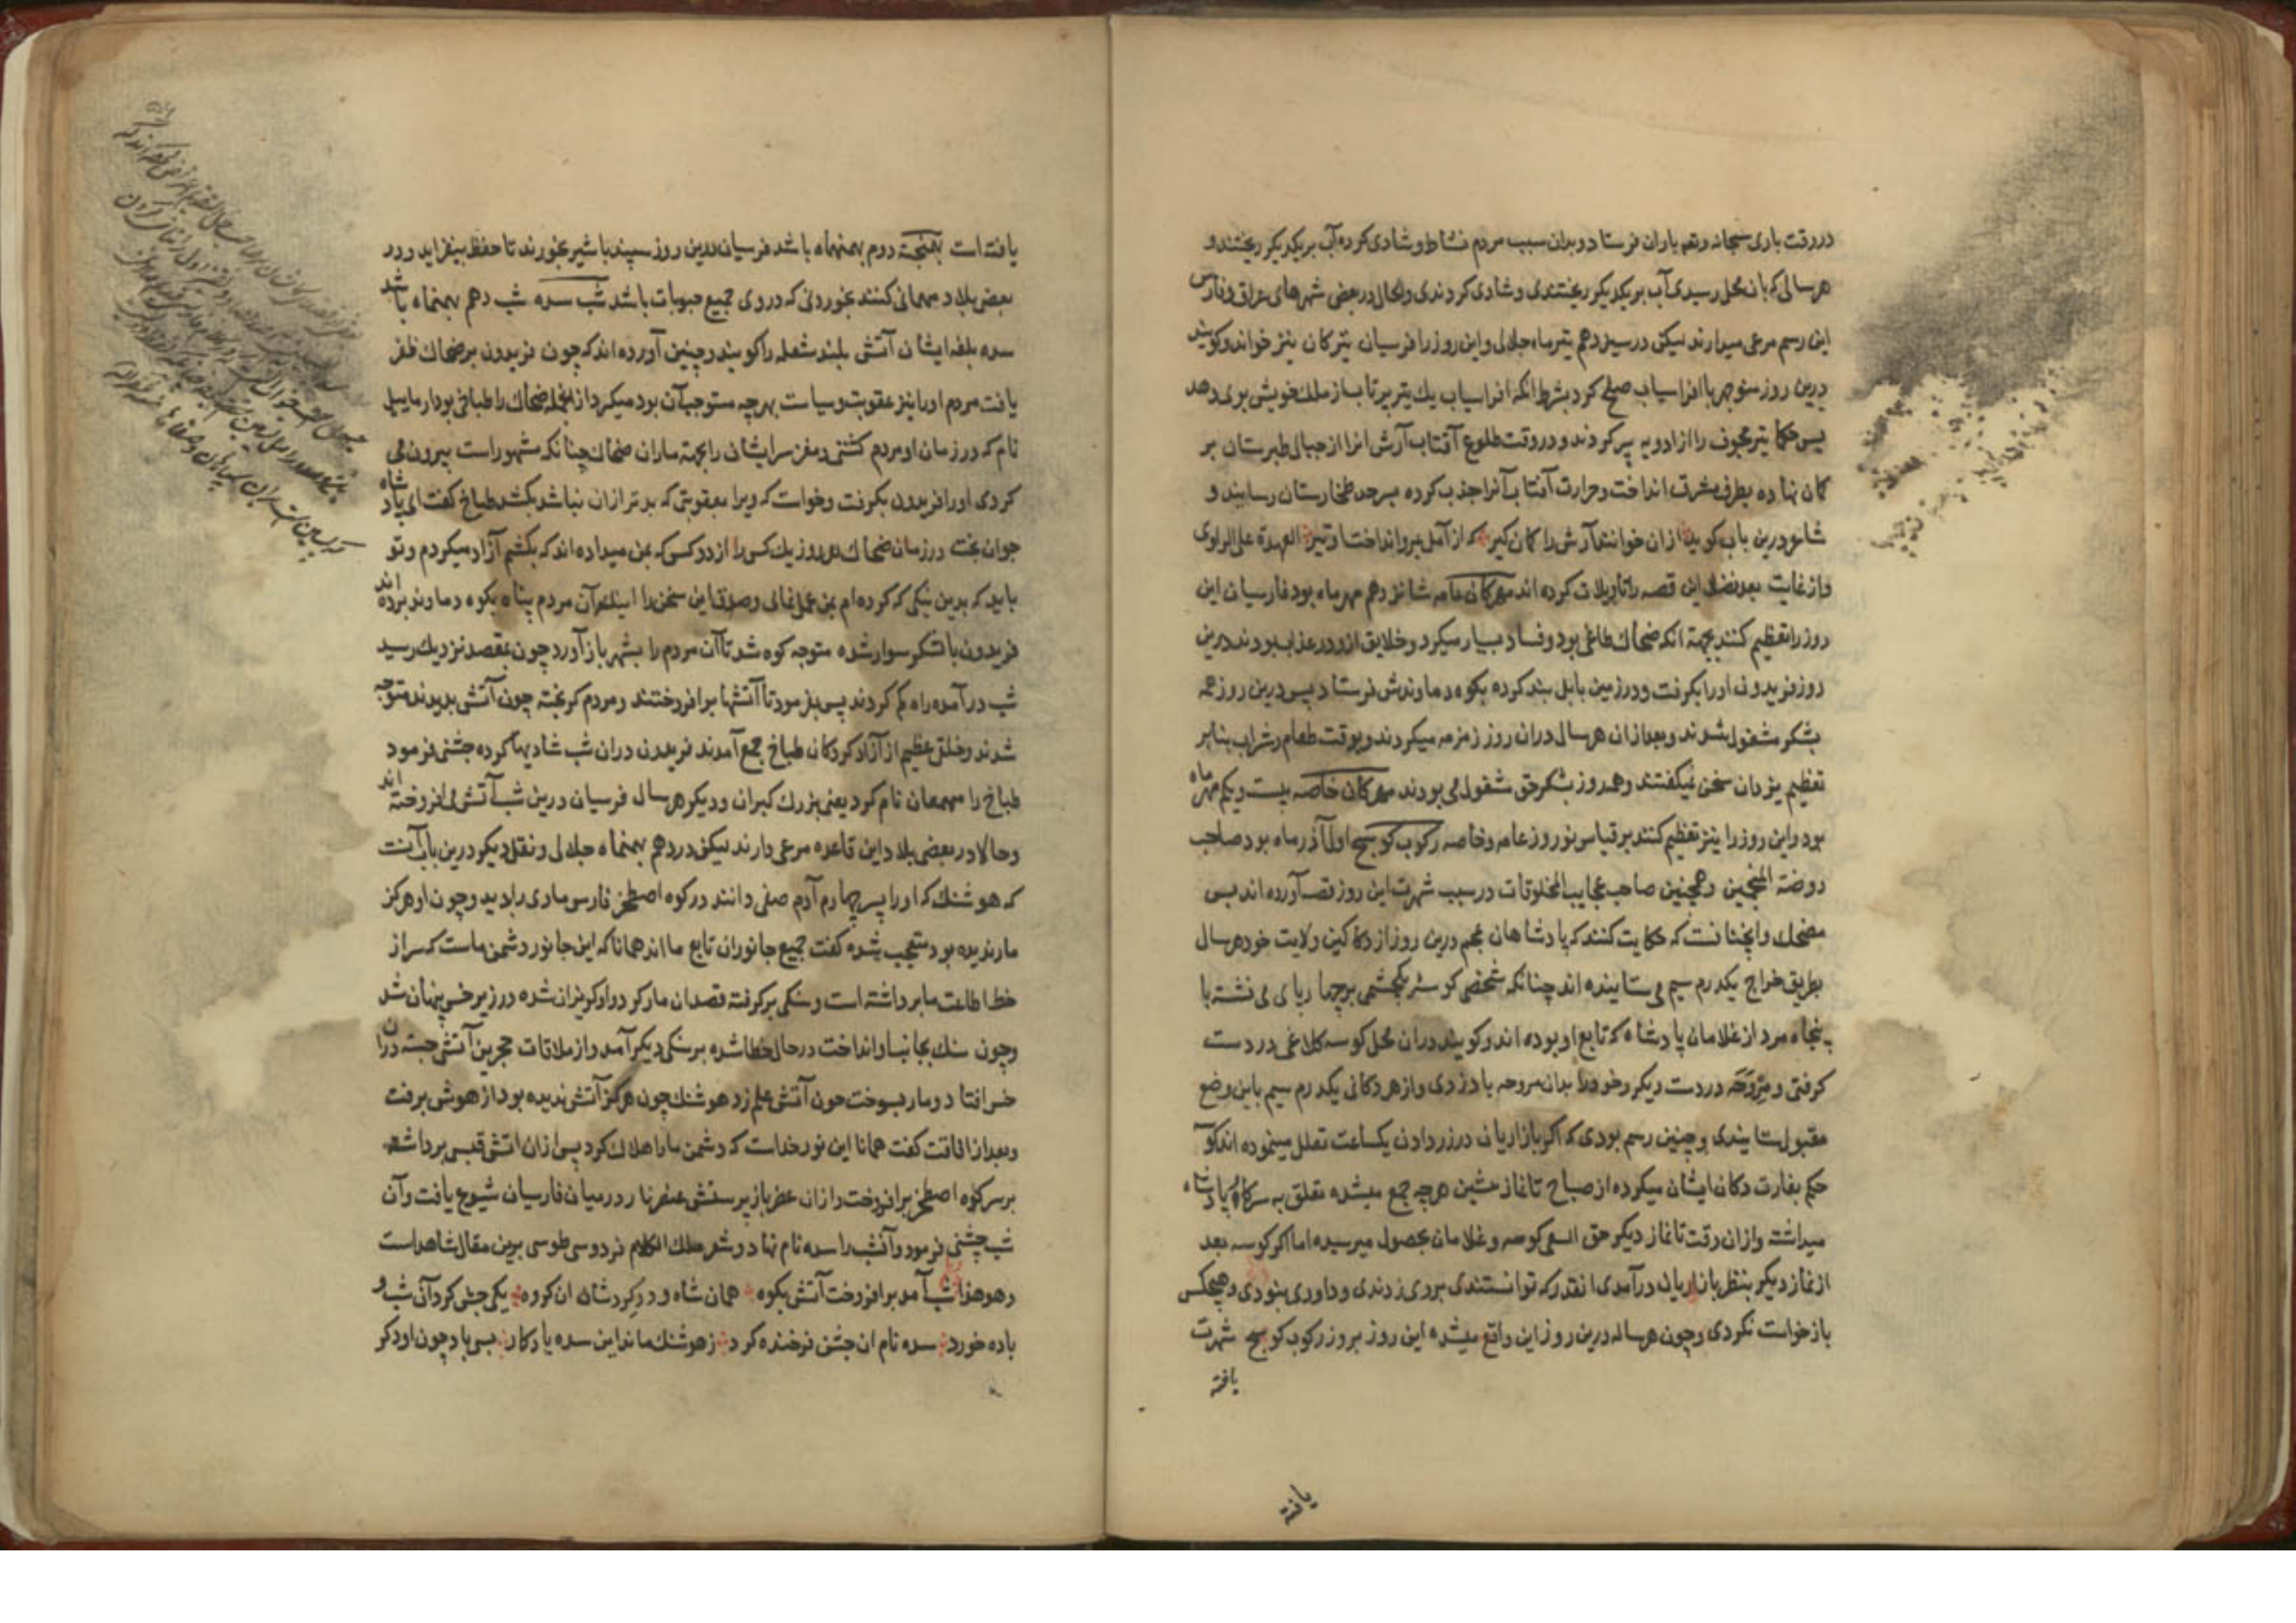 در وقت باری سبحانه و تعالی باران فرستاد و بدان سبب مردم نشاط و شادی کرده آب بر یکدیگر ریختند و
هر سالی که بان محل رسیدی آب بر یکدیگر ریختندی و شادی کردندی و الحال در بعضی شهرهای عراق و فارس
این رسم مرعی میدارند لیکن در سیزدهم تیرماه جلالی و این روز را فرسیان تیرکان نیز خوانند و کویند
درین روز منوچهر با افراسیاب صلح کرد بشرط انکه افراسیاب یک تیر پرتاب از ملک خویش بوی دهد
پس حکما تیر مجوف را از ادویه پر کردند و در وقت طلوع آفتاب آرش انرا از جبال طبرستان بر
کمان نهاده بطرف مشرق انداخت و حرارت آفتاب آنرا جذب کرده بسرحد طخارستان رسانید و
شاعر درین باب کوید از ان خوانند آرش را کمان کیر که از آمل بمرو انداخت او تیر العهدة علی الراوی
و از غایت بعد فضلا این قصه را تاویلات کرده اند مهرکان عامه شانزدهم مهر ماه بود فارسیان این
روز را تعظیم کنند بجهة انکه ضحاک طاغی بود و فساد بسیار میکرد و خلایق ازو در عذاب بودند درین
روز فریدون اورا بکرفت و در زمین بابل بند کرده بکوه دماوندش فرستاد پس درین روز همه
بشکر مشغول شدند و بعد از ان هر سال دران روز زمزمه میکردند و بوقت طعام و شراب بنابر
تعظیم یزدان سخن نمیکفتند و همه روز بشکر حق مشغول می بودند مهرکان خاصه بیست و یکم مهر ماه
بود و این روز را نیز تعظیم کنند بر قیاس نوروز عامه و خاصه رکوب کوسج اول آذر ماه بود صاحب
روضة المنجمین و همچنین صاحب عجایب المخلوقات در سبب شهرت این روز قصه آورده اند بس
مضحک و آنچنانست که حکایت کنند که پادشاهان عجم درین روز از دکاکین ولایت خود هر سال
بطریق خراج یکدرم سیم می ستانیده اند چنانکه شخصی کوسه یکچشمی بر چهارپای می نشسته با
پنجاه مرد از غلامان پادشاه که تابع او بوده اند و کویند دران محل کوسه کلاغی در دست
کرفتی و مروحه در دست دیکر و خود را بدان مروحه باد زدی و از هر دکانی یکدرم سیم باین وضع
مقبول ستانیدی و چنین رسم بودی که اکر بازاریان در زر دادن یکساعت تعلل مینموده اند کوسه
حکم بغارت دکان ایشان میکرده از صباح تا نماز پیشین هر چه جمع میشده تعلق به سرکار پادشاه
میداشته و از ان وقت تا نماز دیکر حق السعی کوسه و غلامان بحصول میرسیده اما اکر کوسه بعد
از نماز دیکر بنظر بازاریان درآمدی انقدر که توانستندی بروی زدندی و داوری نبودی و هیچکس
بازخواست نکردی و چون هر ساله درین روز این واقع میشده این روز بروز رکوب کوسج شهرت
یافته
یافته
یافته است بهمنجنه دوم بهمنماه باشد فرسیان درین روز سپند با شیر بخورند تا حفظ بیفزاید و در
بعضی بلاد مهمانی کنند بخوردنی که دروی جمیع حبوبات باشد شب سده شب دهم بهمنماه باشد
سده بلغه ایشان آتش بلند شعله را کویند و چنین آورده اند که چون فریدون بر ضحاک ظفر
یافت مردم اورا نیز عقوبت و سیاست بهر چه مستوجب آن بود میکرد از انجمله ضحاک را طباخی بود ارماییل
نام که در زمان او مردم کشتی و مغز سر ایشان را بجهة ماران ضحاک چنانکه مشهور است بیرون می
کردی اورا فریدون بکرفت و خواست که ویرا بعقوبتی که بدتر ازان نباشد بکشد طباخ کفت ای پادشاه
جوان بخت در زمان ضحاک هر روز یک کس را از دو کس که بمن میداده اند که بکشم آزاد میکردم و تو
باید که بدین نیکی که کرده ام بمن عمل نمائی و صدق این سخن را اینک آن مردم پناه بکوه دماوند برده اند
فریدون با لشکر سوار شده متوجه کوه شد تا آن مردم را بشهر باز آورد چون بمقصد نزدیک رسید
شب درآمده راه کم کردند پس بفرمود تا آتشها برافروختند و مردم کریخته چون آتش بدیدند متوجه
شدند و خلق عظیم از آزاد کردکان طباخ جمع آمدند فریدون دران شب شادیها کرده جشنی فرمود
طباخ را مهمعان نام کرد یعنی بزرک کبران و دیکر هر سال فرسیان درین شب آتش می افروخته اند
و حالا در بعضی بلاد این قاعده مرعی دارند لیکن در دهم بهمنماه جلالی و نقل دیکر درین باب آنست
که هوشنک که اورا پسر چهارم آدم صفی دانند در کوه اصطخر فارس ماری را بدید و چون او هرکز
مار ندیده بود متعجب شده کفت جمیع جانوران تابع ما اند همانا که این جانور دشمن ماست که سر از
خط اطاعت ما برداشته است و سنکی برکرفته قصد ان مار کرد و او کریزان شده در زیر خسی پنهان شد
و چون سنک بجانب او انداخت در حال خطا شده بر سنکی دیکر آمد و از ملاقات حجرین آتش جسته دران
خس افتاد و مار بسوخت چون آتش علم زد هوشنک چون هرکز آتش ندیده بود از هوش برفت
و بعد از افاقت کفت همانا این نور خداست که دشمن مارا هلاک کرد پس ازان اتش قبسی برداشته
بر سر کوه اصطخر برافروخت و ازان عصر باز پرستش عنصر نار در میان فارسیان شیوع یافت و آن
شب جشنی فرمود و آنشب را سده نام نهاد و شعر ملک الکلام فردوسی طوسی برین مقال شاهد است
و هو هذا شب آمد برافروخت آتش بکوه همان شاه و در کرد شان ان کروه یکی جشن کرد آن شب و
باده خورد سده نام ان جشن فرخنده کرد ز هوشنک ماند این سده یادکار بسی باد چون او دکر